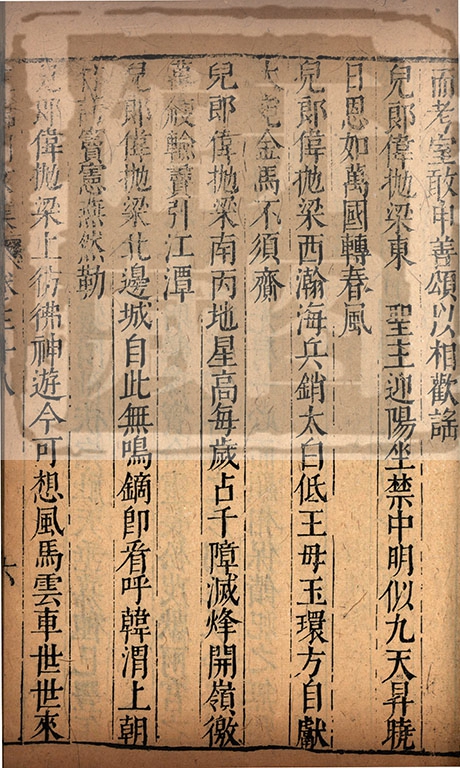 而考室敢申善頌以相歡謠
兒郎偉抛梁東 聖主迎陽坐禁中明似九天昇曉
日恩如萬國轉春風
兒郎偉抛梁西瀚海兵銷太白低王母玉環方自獻
大宛金馬不須齎
兒郎偉抛梁南丙地星高每歲占千障滅烽開嶺徼
萬艘輸賮引江潭
兒郎偉抛梁北邊城自此無鳴鏑即看呼韓渭上朝
竇憲燕然勒
兒郎偉抛梁上彷彿神遊今可想風馬雲車世世來
六